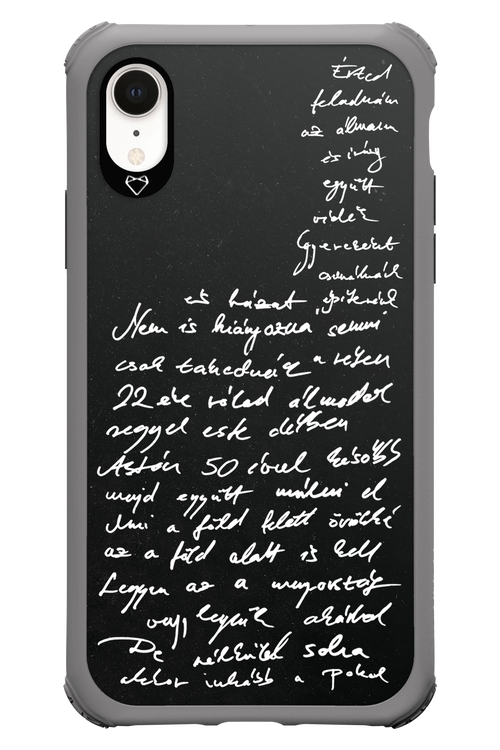 Érted
feladnám
az álmaim
és irány
együtt
vidék
Gyereket
csinálnék
és házat építenék
Nem is hiányozna semmi
csak takednék a réten
22 éve rólad álmodok
reggel este délben
Aztán 50 évvel később
majd együtt múlni el
Ami a föld felett örökké
az a föld alatt is kell
Legyen az a mennyország
vagy legyünk akárhol
De nélküled soha
akkor inkább a pokol